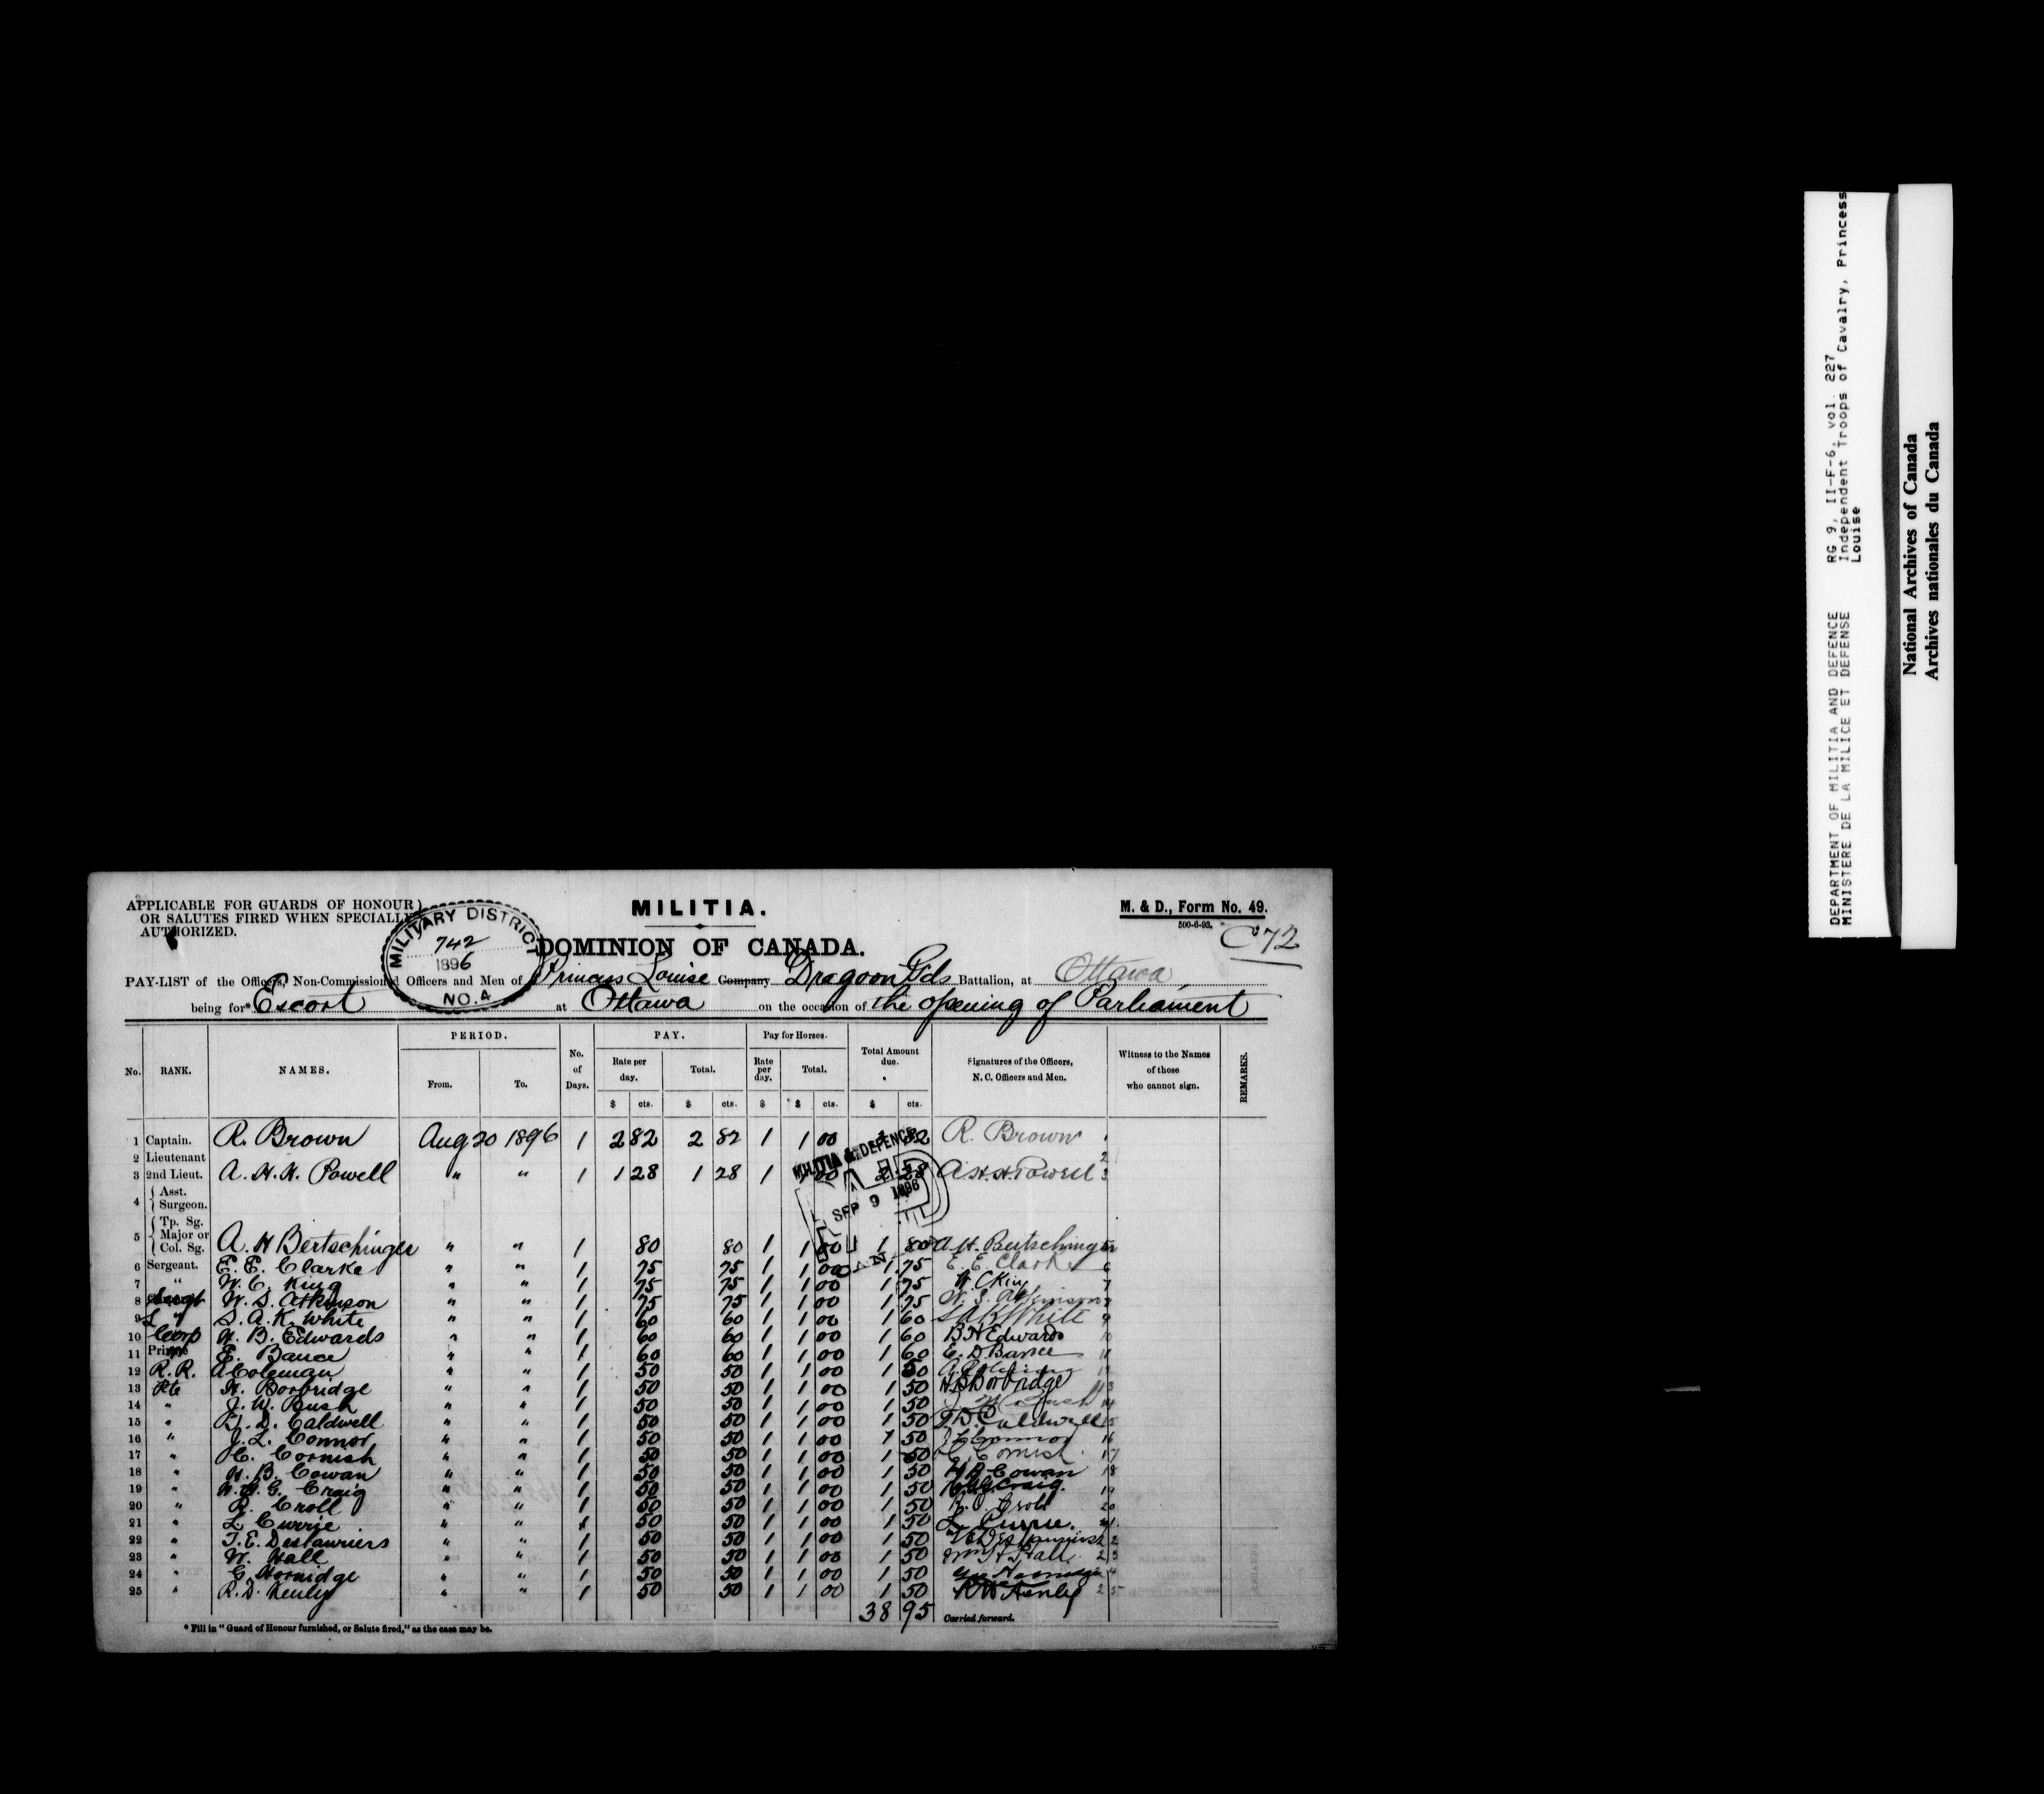 APPLICABLE FOR GUARDS OF HONOUR
OR SALUTES FIRED WHEN SPECIALLY
AUTHORIZED.
MILITARY DISTRICT
742
1896
NO. 4
MILITIA.
DOMINION OF CANADA.
M. & D., Form No. 49.
500-6-93.
C 72
PAY-LIST of the Officers, Non-Commissioned Officers and Men of Princess Louise Company Dragoon Gds Battalion, at Ottawa
being for* Escort at Ottawa on the occasion of the opening of Parliament
No. RANK. NAMES. PERIOD. From. To. No. of Days. PAY. Rate per day. $ cts. Total. $ cts. Pay for Horses. Rate per day. $ Total. $ cts. Total Amount due. $ cts. Signatures of the Officers, N. C. Officers and Men. Witness to the Names of those who cannot sign. REMARKS.
1 Captain. R. Brown Aug 20 1896 1 2 82 2 82 1 1 00 82 R. Brown 1
2 Lieutenant 2
3 2nd Lieut. A. H. H. Powell " " 1 1 28 1 28 1 1 00 2 28 A. H. H. Powell 3
MILITIA & DEFENCE
SEP 9 1896
CAN
4 Asst. Surgeon.
5 Tp. Sg. Major or Col. Sg. A. H Bertschinger " " 1 80 80 1 1 00 1 80 A. H. Bertschinger
6 Sergeant. E. E. Clarke " " 1 75 75 1 1 00 1 75 E. E. Clark 6
7 " W. C. King " " 1 75 75 1 1 00 1 75 W C King 7
8 W. S. Atkinson " " 1 75 75 1 1 00 1 75 W. S. Atkinson 8
9 L " S. A. K. White " " 1 60 60 1 1 00 1 60 S A K White 9
10 Corp H. B. Edwards " " 1 60 60 1 1 00 1 60 B H Edwards 10
11 E. Bance " " 1 60 60 1 1 00 1 60 E. D Bance 11
12 R. R. A Coleman " " 1 50 50 1 1 00 1 50 12
13 Pte H. Borbridge " " 1 50 50 1 1 00 1 50 H S Borbridge 13
14 " J. W. Bush " " 1 50 50 1 1 00 1 50 14
15 " D. Caldwell " " 1 50 50 1 1 00 1 50 Caldwell 15
16 " J. L. Connor " " 1 50 50 1 1 00 1 50 J L Connor 16
17 " C. Cornish " " 1 50 50 1 1 00 1 50 C Cornish 17
18 " H. B. Cowan " " 1 50 50 1 1 00 1 50 H B Cowan 18
19 " G. Craig " " 1 50 50 1 1 00 1 50 Craig. 19
20 " R. Croll " " 1 50 50 1 1 00 1 50 Croll 20
21 " L. Currie " " 1 50 50 1 1 00 1 50 L. Currie. 21
22 " T. E. Deslauriers " " 1 50 50 1 1 00 1 50 Deslauriers 22
23 " W. Hall " " 1 50 50 1 1 00 1 50 Wm H Hall 23
24 " G. Hornidge " " 1 50 50 1 1 00 1 50 Geo Hornidge 24
25 " R. D. Henly " " 1 50 50 1 1 00 1 50 Henly 25
38 95 Carried forward.
* Fill in "Guard of Honour furnished, or Salute fired," as the case may be.
DEPARTMENT OF MILITIA AND DEFENCE RG 9, II-F-6, vol. 227
MINISTERE DE LA MILICE ET DEFENSE Independent Troops of Cavalry, Princess
Louise
National Archives of Canada
Archives nationales du Canada